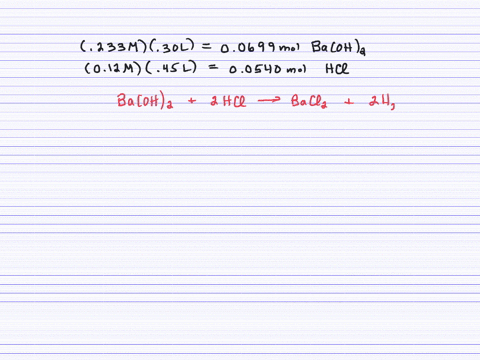 (.233M)(.30L) = 0.0699 mol Ba(OH)₂
(0.12M)(.45L) = 0.0540 mol HCl
Ba(OH)₂ + 2HCl → BaCl₂ + 2H,